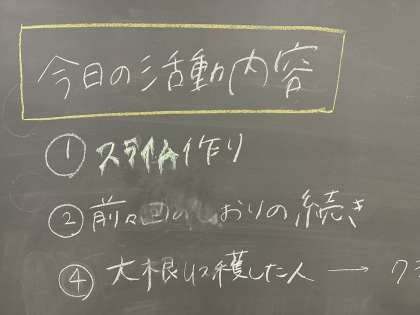 今日の活動内容
① スライム作り
② 前々回のしおりの続き
④ 大根収穫した人 → ク